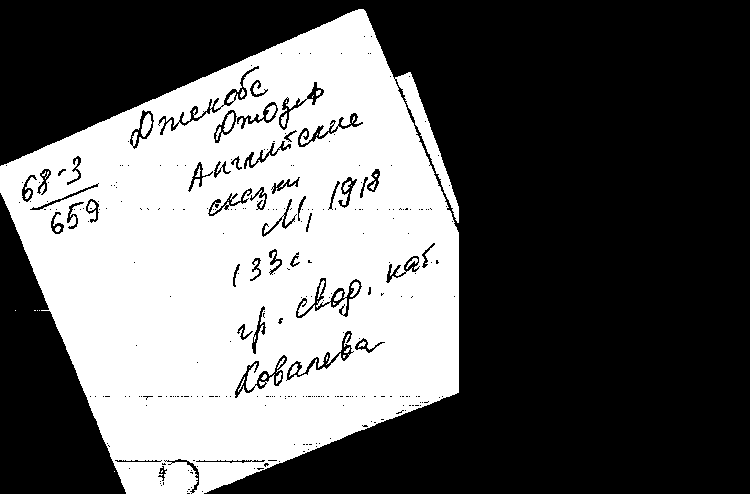 Джекобс
Джозеф
68-3
659
Английские
сказки
М, 1918
133 с.
гр. свод. кат.
Ковалева